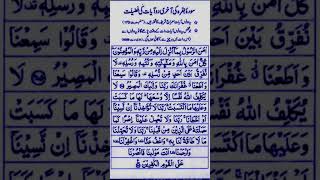 سورۃ بقرہ کی آخری دو آیات کی فضیلت
اٰمَنَ الرَّسُوْلُ بِمَاۤ اُنْزِلَ اِلَیْهِ مِنْ رَّبِّهٖ وَالْمُؤْمِنُوْنَ
كُلٌّ اٰمَنَ بِاللّٰهِ وَمَلٰٓئِكَتِهٖ وَكُتُبِهٖ وَرُسُلِهٖ
لَا نُفَرِّقُ بَیْنَ اَحَدٍ مِّنْ رُّسُلِهٖ وَقَالُوْا سَمِعْنَا
وَاَطَعْنَا غُفْرَانَكَ رَبَّنَا وَاِلَیْكَ الْمَصِیْرُ لَا
یُكَلِّفُ اللّٰهُ نَفْسًا اِلَّا وُسْعَهَا لَهَا مَا كَسَبَتْ
وَعَلَیْهَا مَا اكْتَسَبَتْ رَبَّنَا لَا تُؤَاخِذْنَاۤ اِنْ نَّسِیْنَاۤ
اَوْ اَخْطَاْنَا رَبَّنَا وَلَا تَحْمِلْ عَلَیْنَاۤ اِصْرًا كَمَا
حَمَلْتَهٗ عَلَى الَّذِیْنَ مِنْ قَبْلِنَا رَبَّنَا وَلَا تُحَمِّلْنَا
مَا لَا طَاقَةَ لَنَا بِهٖ وَاعْفُ عَنَّا وَاغْفِرْ لَنَا
وَارْحَمْنَا اَنْتَ مَوْلٰىنَا فَانْصُرْنَا
عَلَى الْقَوْمِ الْكٰفِرِیْنَ